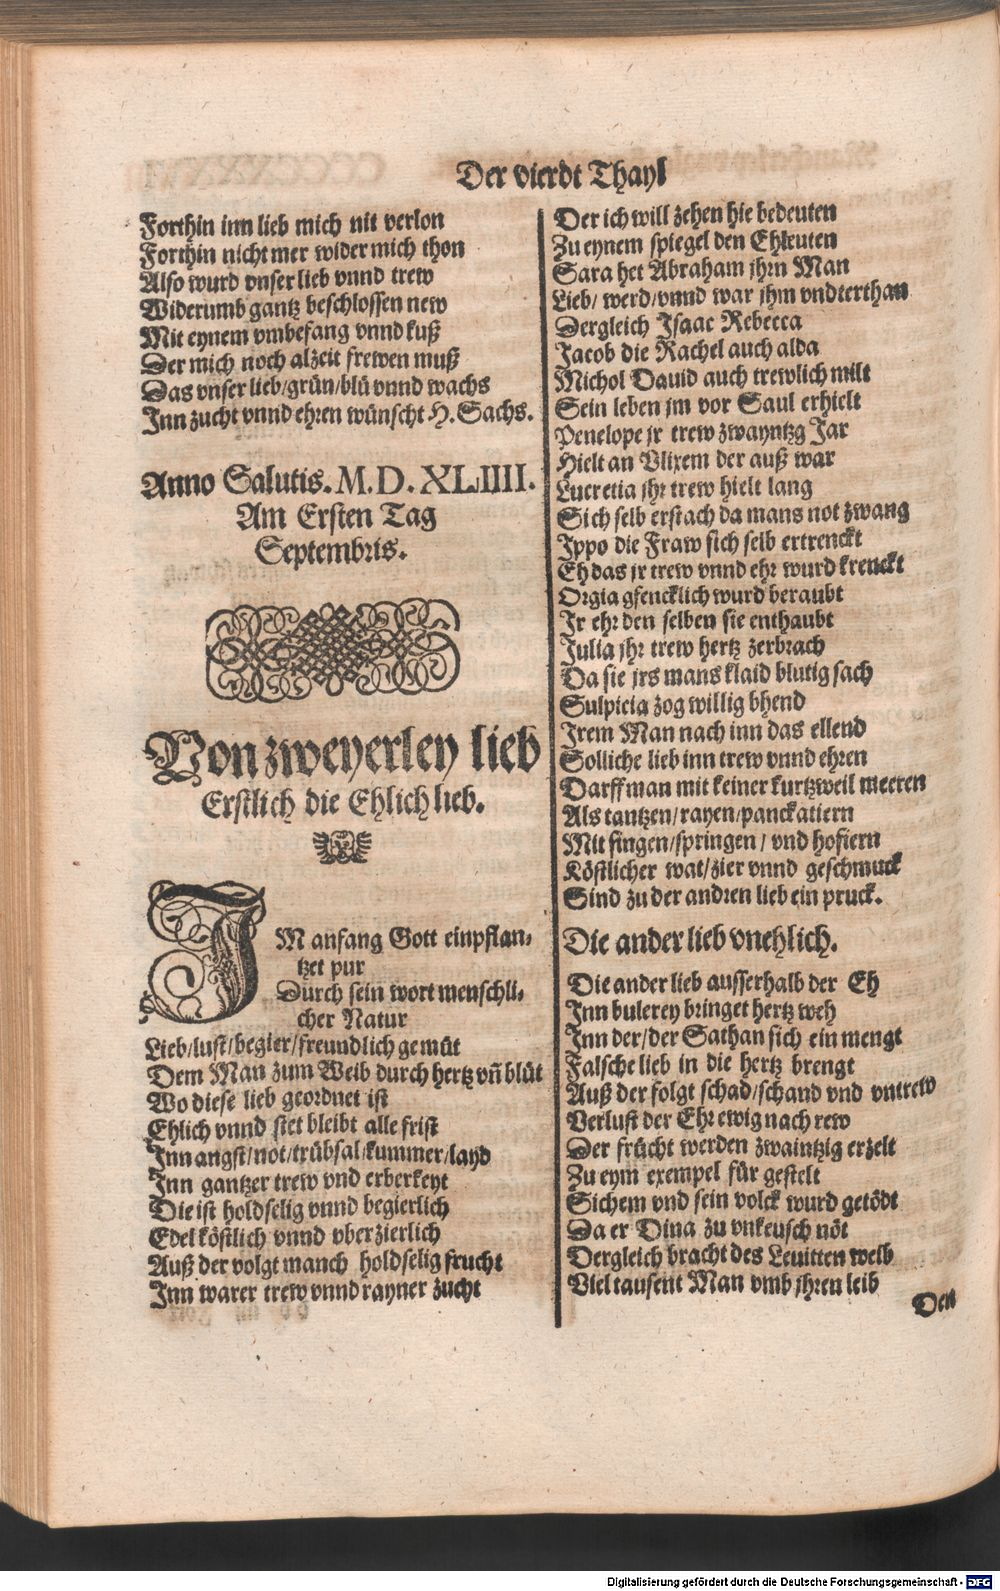 Der vierdt Thayl
Forthin inn lieb mich nit verlon
Forthin nicht mer wider mich thon
Also wurd vnser lieb vnnd trew
Widerumb gantz beschlossen new
Mit eynem vmbefang vnnd kuß
Der mich noch alzeit frewen muß
Das vnser lieb/grün/blü vnnd wachs
Inn zucht vnnd ehren wünscht H. Sachs.
Anno Salutis. M.D.XLIIII.
Am Ersten Tag
Septembris.
Von zweyerley lieb
Erstlich die Ehlich lieb.
IM anfang Gott einpflan-
tzet pur
Durch sein wort menschli-
cher Natur
Lieb/lust/begier/freundlich gemüt
Dem Man zum Weib durch hertz vñ blüt
Wo diese lieb geordnet ist
Ehlich vnnd stet bleibt alle frist
Inn angst/not/trübsal/kummer/layd
Inn gantzer trew vnd erberkeyt
Die ist holdselig vnnd begierlich
Edel köstlich vnnd vberzierlich
Auß der volgt manch holdselig frucht
Inn warer trew vnnd rayner zucht
Der ich will zehen hie bedeuten
Zu eynem spiegel den Ehleuten
Sara het Abraham jhrn Man
Lieb/ werd/vnnd war jhm vndterthan
Dergleich Isaac Rebecca
Jacob die Rachel auch alda
Michol Dauid auch trewlich milt
Sein leben jm vor Saul erhielt
Penelope jr trew zwayntzg Jar
Hielt an Vlixem der auß war
Lucretia jhr trew hielt lang
Sich selb erstach da mans not zwang
Ippo die Fraw sich selb ertrenckt
Eh das jr trew vnnd ehr wurd krenckt
Orgia gfencklich wurd beraubt
Ir ehr den selben sie enthaubt
Julia jhr trew hertz zerbrach
Da sie jrs mans klaid blutig sach
Sulpicia zog willig bhend
Irem Man nach inn das ellend
Solliche lieb inn trew vnnd ehren
Darff man mit keiner kurtzweil meeren
Als tantzen/rayen/panckatiern
Mit singen/springen/ vnd hofiern
Köstlicher wat/zier vnnd geschmuck
Sind zu der andren lieb ein pruck.
Die ander lieb vnehlich.
Die ander lieb ausserhalb der Eh
Inn bulerey bringet hertz weh
Inn der/der Sathan sich ein mengt
Falsche lieb in die hertz brengt
Auß der folgt schad/schand vnd vntrew
Verlust der Ehr ewig nach rew
Der frücht werden zwaintzig erzelt
Zu eym exempel für gestelt
Sichem vnd sein volck wurd getödt
Da er Dina zu vnkeusch nöt
Dergleich bracht des Leuitten weib
Viel tausent Man vmb jhren leib
Den
Digitalisierung gefördert durch die Deutsche Forschungsgemeinschaft - DFG